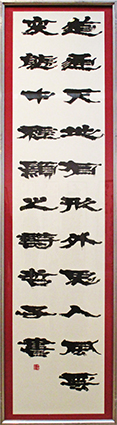 道通天地有形外思入風雲
變態中程顥之詩哲子書